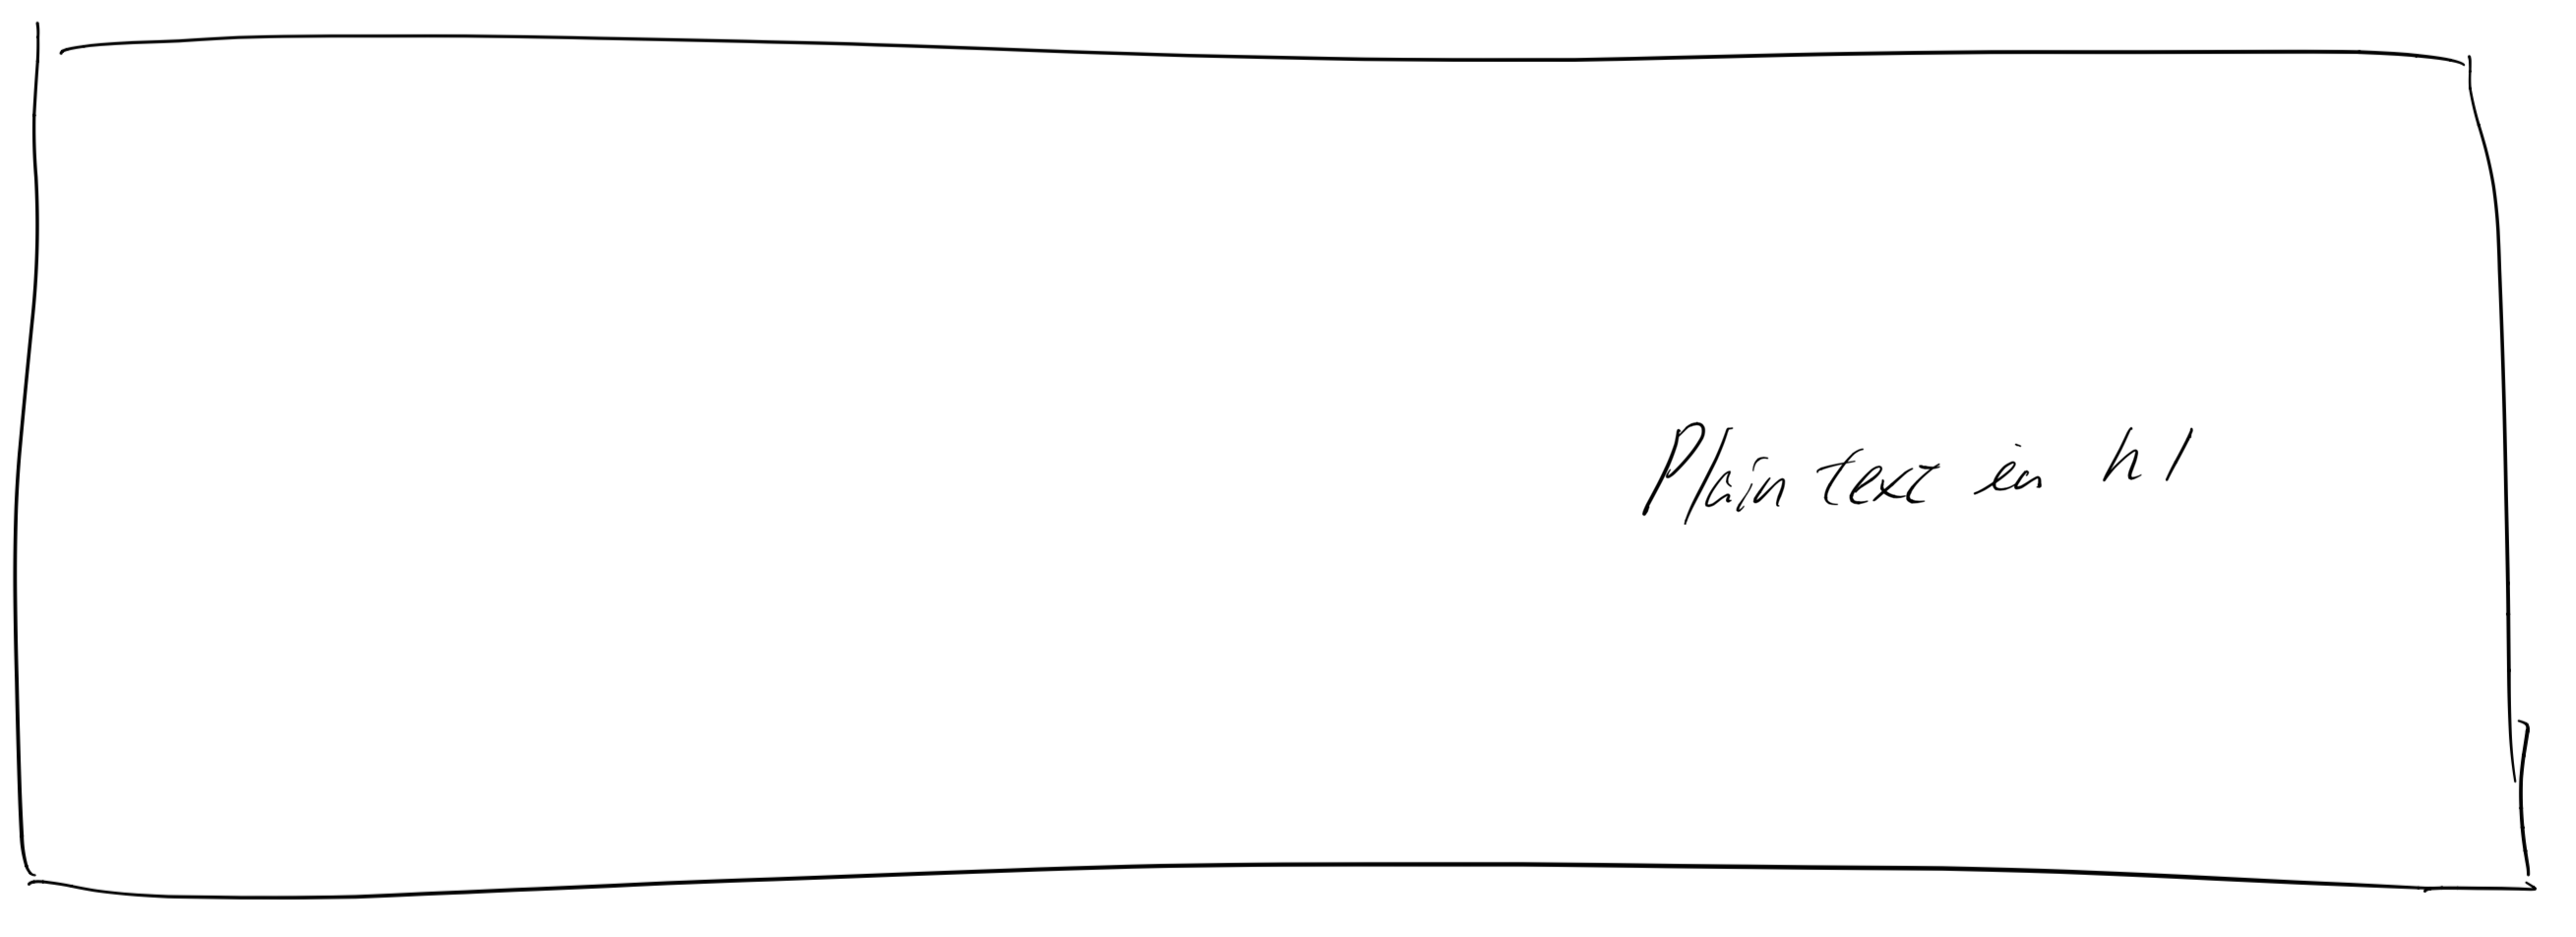 Plain text in h1